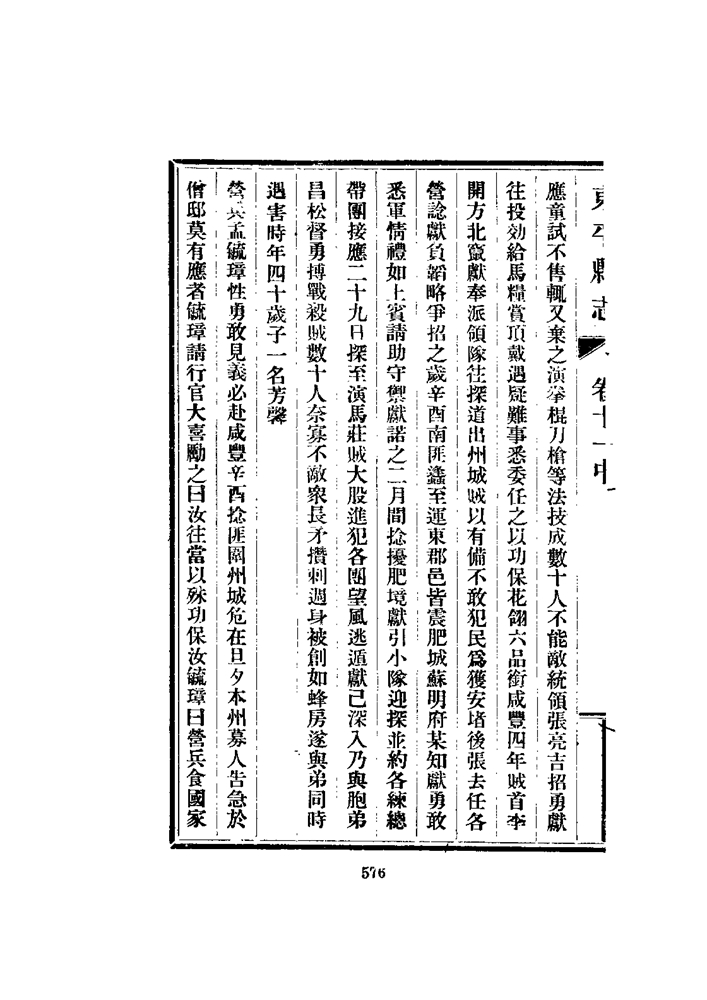 東平縣志 卷十一中
應童試不售輒又棄之演拳棍刀槍等法技成數十人不能敵統領張亮吉招勇獻
往投効給馬糧賞頂戴遇疑難事悉委任之以功保花翎六品銜咸豐四年賊首李
開方北竄獻奉派領隊往探道出州城賊以有備不敢犯民爲獲安堵後張去任各
營諗獻負韜略爭招之歲辛酉南匪蠭至運東郡邑皆震肥城蘇明府某知獻勇敢
悉軍情禮如上賓請助守禦獻諾之二月間捻擾肥境獻引小隊迎探並約各練總
帶團接應二十九日探至演馬莊賊大股進犯各團望風逃遁獻已深入乃與胞弟
昌松督勇搏戰殺賊數十人奈寡不敵衆長矛攢刺週身被創如蜂房遂與弟同時
遇害時年四十歲子一名芳馨
營兵孟毓璋性勇敢見義必赴咸豐辛酉捻匪圍州城危在旦夕本州募人告急於
僧邸莫有應者毓璋請行官大喜勵之曰汝往當以殊功保汝毓璋曰營兵食國家
576